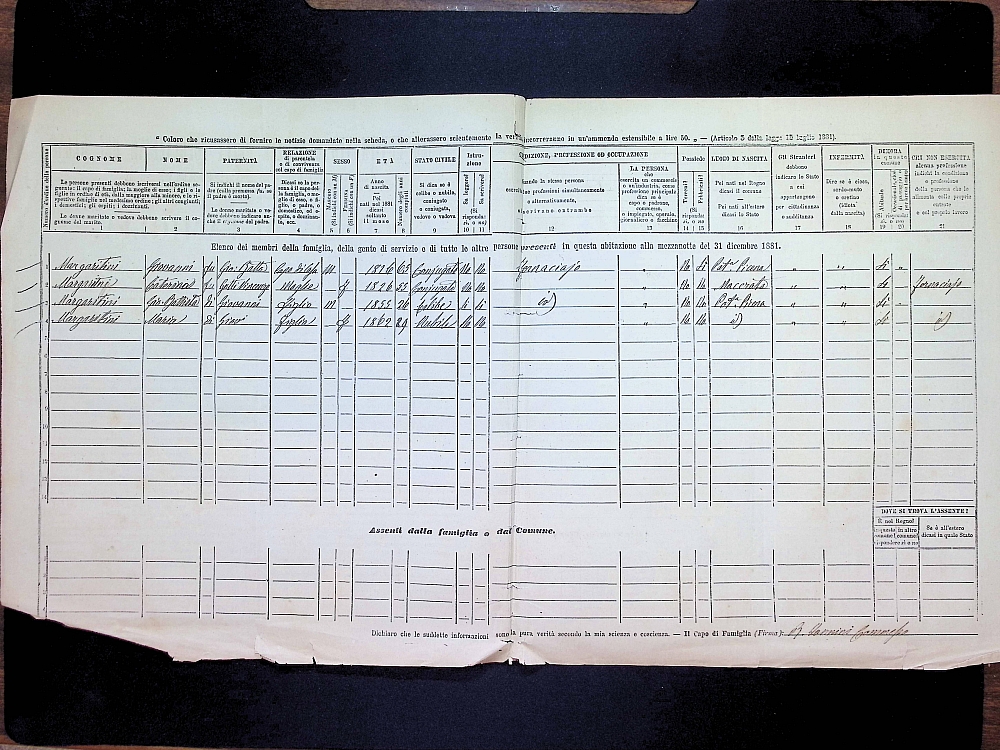 " Coloro che ricusassero di fornire le notizie domandate nella scheda, o che alterassero scientemente la verità incorreranno in un'ammenda estensibile a lire 50. „ — (Articolo 5 della legge 15 luglio 1881).
COGNOME
NOME
PATERNITÀ
RELAZIONE di parentela o di convivenza col capo di famiglia
SESSO
ETÀ
STATO CIVILE
Istruzione
CONDIZIONE, PROFESSIONE OD OCCUPAZIONE
Possiede
LUOGO DI NASCITA
Gli Stranieri debbono indicare lo Stato a cui appartengono per cittadinanza o sudditanza
INFERMITÀ
DIMORA in questo comune
CHI NON ESERCITA alcuna professione indichi la condizione o professione della persona che lo alimenta colle proprie entrate o col proprio lavoro
Le persone presenti debbono iscriversi nell'ordine seguente: il capo di famiglia; la moglie di esso; i figli e le figlie in ordine di età, dalla maggiore alla minore, e le rispettive famiglie nel medesimo ordine; gli altri congiunti; i domestici; gli ospiti; i dozzinanti.
Le donne maritate o vedove debbono scrivere il cognome del marito.
Si indichi il nome del padre (colla premessa fu, se il padre è morto).
Le donne maritate o vedove debbono indicare anche il cognome del padre.
Dicasi se la persona è il capo della famiglia, moglie di esso, o figlio, o padre, o domestico, od ospite, o dozzinante, ecc.
Maschio (Si indichi con un M)
Femmina (Si indichi con un F)
Anno di nascita
Pei nati nel 1881 dicasi soltanto il mese
Numero degli anni compiuti
Si dica se è celibe o nubile, coniugato o coniugata, vedovo o vedova
Sa leggere?
Sa scrivere?
(Si risponda: sì, o no)
LA PERSONA che esercita un commercio o un'industria, come professione principale dica se è capo o padrone, commesso, o impiegato, operaio, giornaliero o facchino
Terreni?
Fabbricati?
(Si risponda: sì, o no)
Pei nati nel Regno dicasi il comune
Pei nati all'estero dicasi lo Stato
Dire se è cieco, sordo-muto o cretino (idiota dalla nascita)
1 2 3 4 5 6 7 8 9 10 11 12 13 14 15 16 17 18 19 20 21
Elenco dei membri della famiglia, della gente di servizio e di tutte le altre persone presenti in questa abitazione alla mezzanotte del 31 dicembre 1881.
1 Margaritini Giovanni fu Gio: Batta Capo di fam. m — 1816 65 Coniugato No No Fornaciajo „ No Si Pot.ª Picena „ „ Si „
2 Margaritini Caterina fu Vincenzo Moglie — f 1826 55 Coniugata No No „ No No Macerata „ „ Si — Fornaciajo
3 Margaritini Gio: Battista di Giovanni Figlio m — 1855 26 Celibe Si Si id) „ No No Pot.ª Picena „ „ Si —
4 Margaritini Maria di Giovi Figlia — f 1862 Nubile No No „ No No id) „ „ Si — id)
DOVE SI TROVA L'ASSENTE?
È nel Regno?
in questo comune
in altro comune
(rispondere sì o no)
Se è all'estero dicasi in quale Stato
Assenti dalla famiglia o dal Comune.
Dichiaro che le suddette informazioni sono la pura verità secondo la mia scienza e coscienza. — Il Capo di Famiglia (Firma):